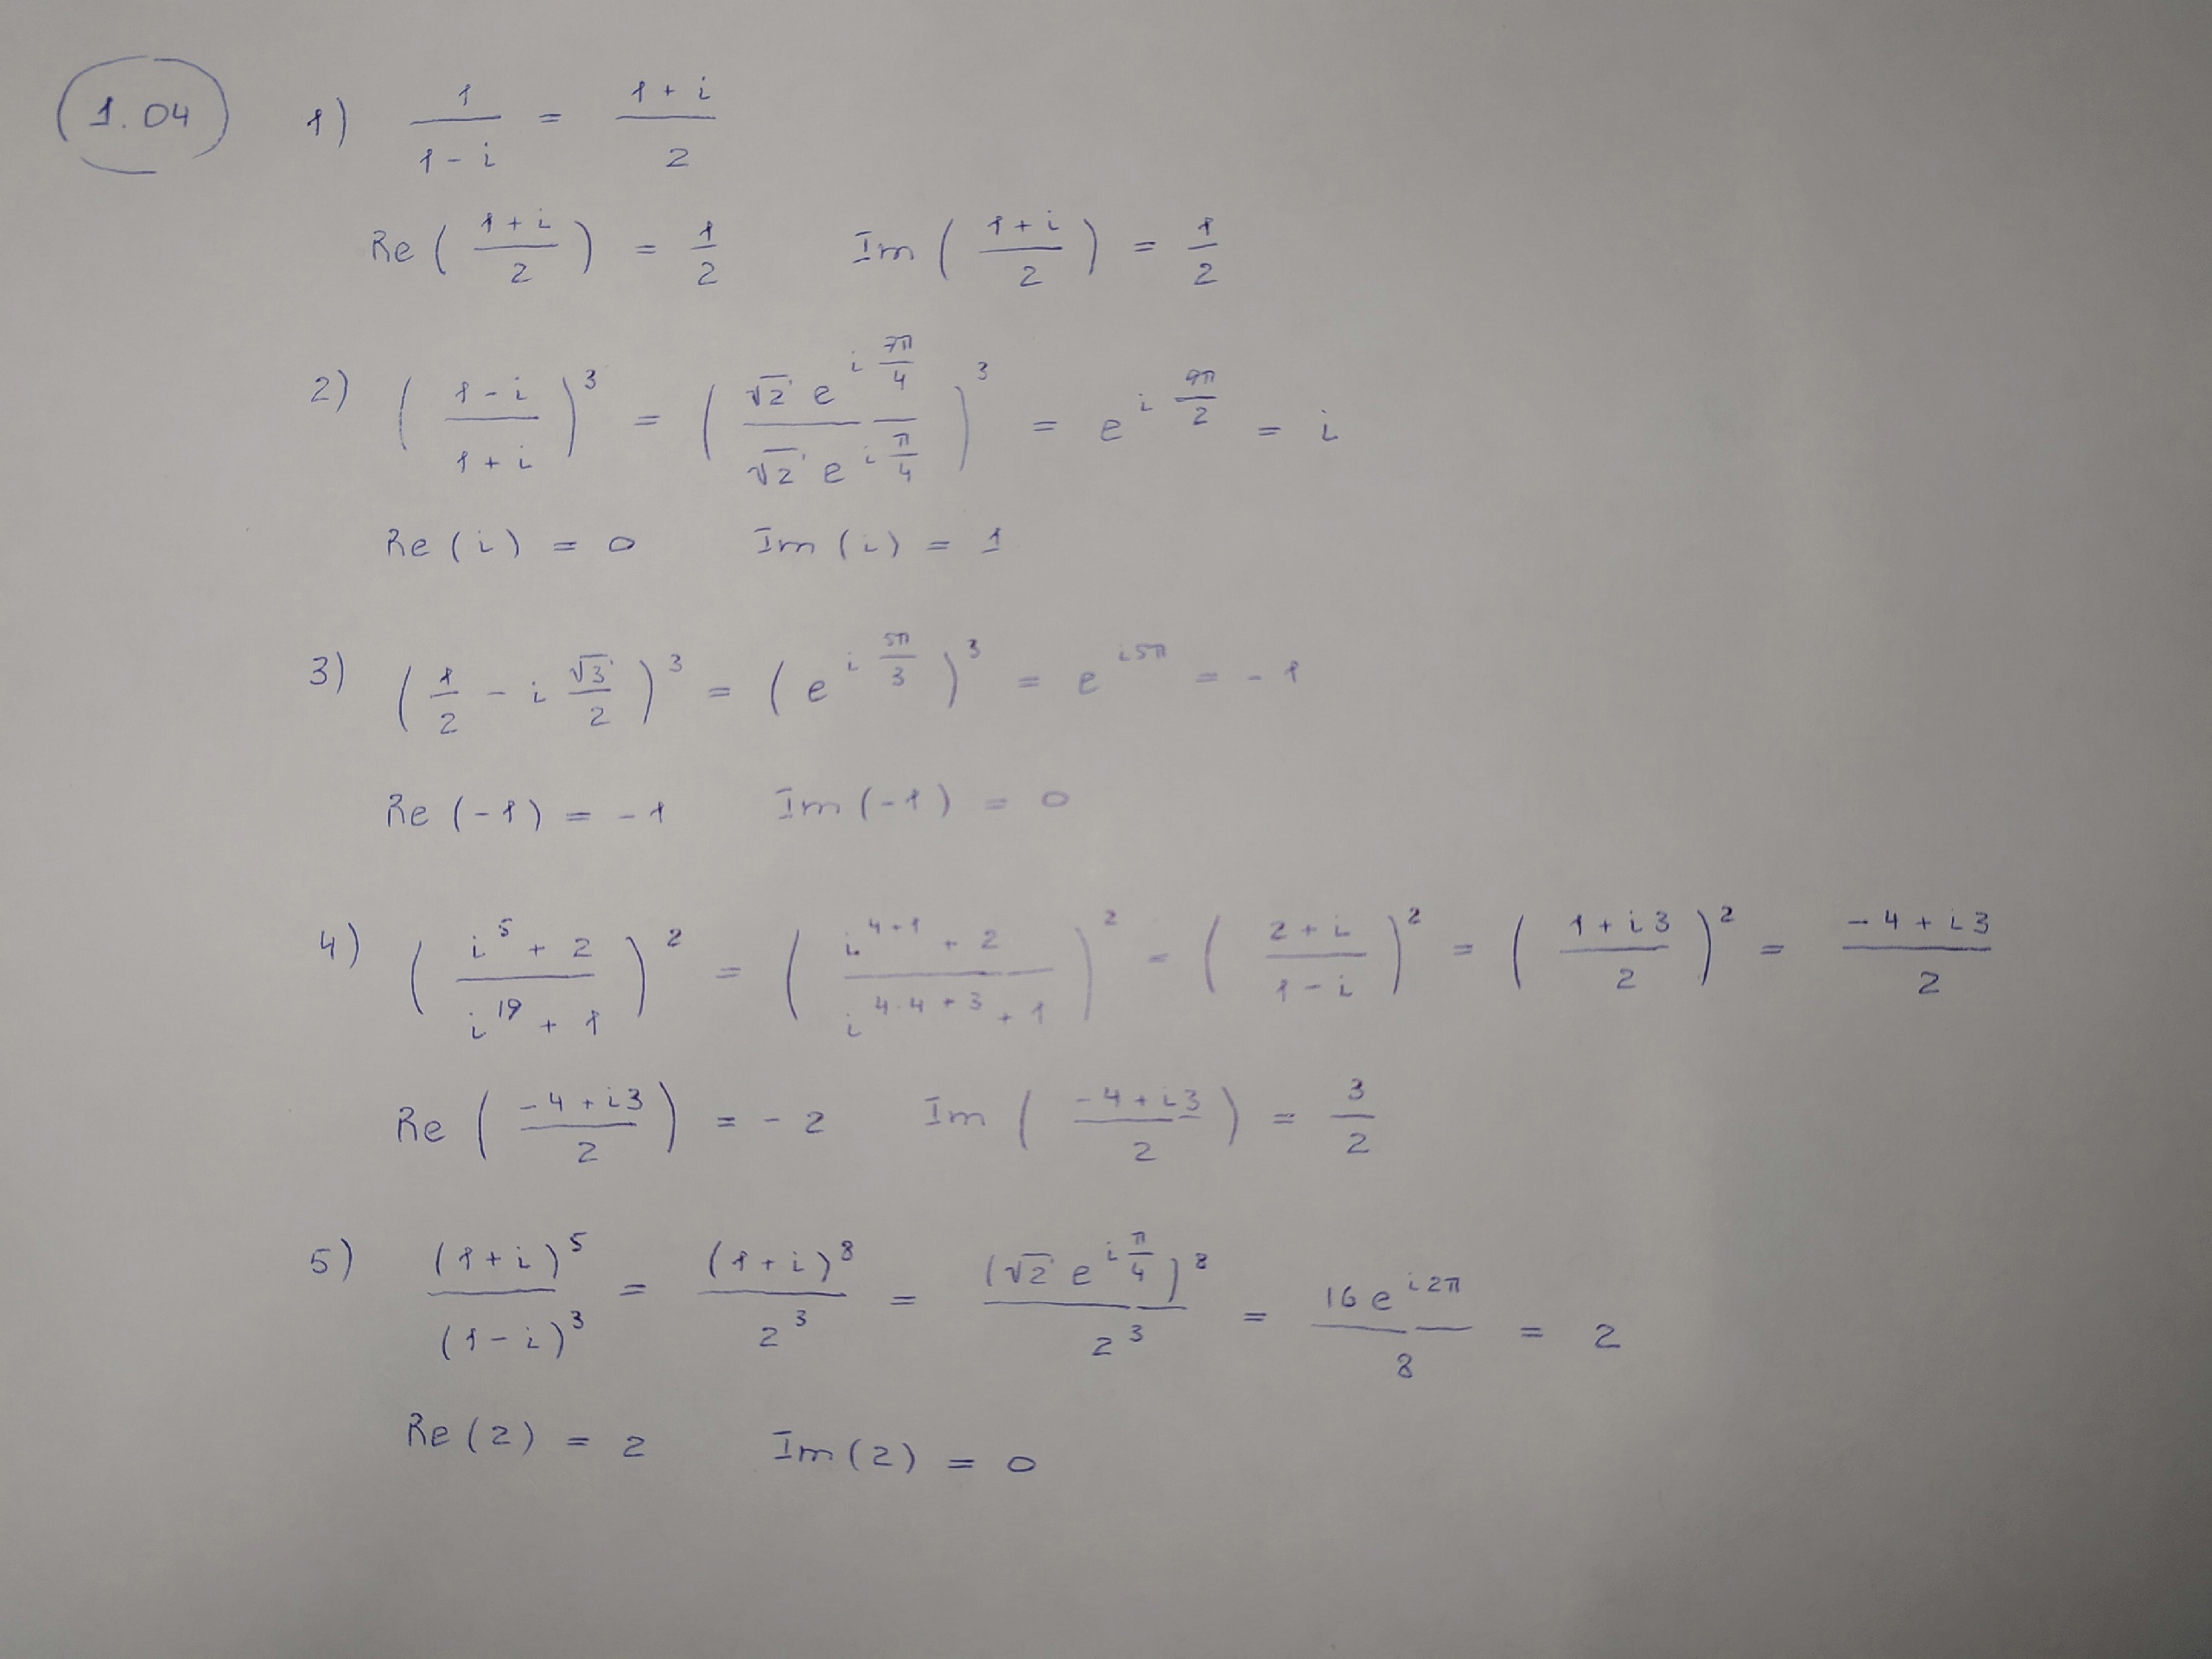 1.04 1) \frac{1}{1-i} = \frac{1+i}{2}
Re(\frac{1+i}{2}) = \frac{1}{2} Im(\frac{1+i}{2}) = \frac{1}{2}
2) (\frac{1-i}{1+i})^3 = (\frac{\sqrt{2} e^{i\frac{7π}{4}}}{\sqrt{2} e^{i\frac{π}{4}}})^3 = e^{i\frac{9π}{2}} = i
Re(i) = 0 Im(i) = 1
3) (\frac{1}{2} - i\frac{\sqrt{3}}{2})^3 = (e^{i\frac{5π}{3}})^3 = e^{i5π} = -1
Re(-1) = -1 Im(-1) = 0
4) (\frac{i^5+2}{i^{19}+1})^2 = (\frac{i^{4+1}+2}{i^{4·4+3}+1})^2 = (\frac{2+i}{1-i})^2 = (\frac{1+i3}{2})^2 = \frac{-4+i3}{2}
Re(\frac{-4+i3}{2}) = -2 Im(\frac{-4+i3}{2}) = \frac{3}{2}
5) \frac{(1+i)^5}{(1-i)^3} = \frac{(1+i)^8}{2^3} = \frac{(\sqrt{2} e^{i\frac{π}{4}})^8}{2^3} = \frac{16e^{i2π}}{8} = 2
Re(2) = 2 Im(2) = 0